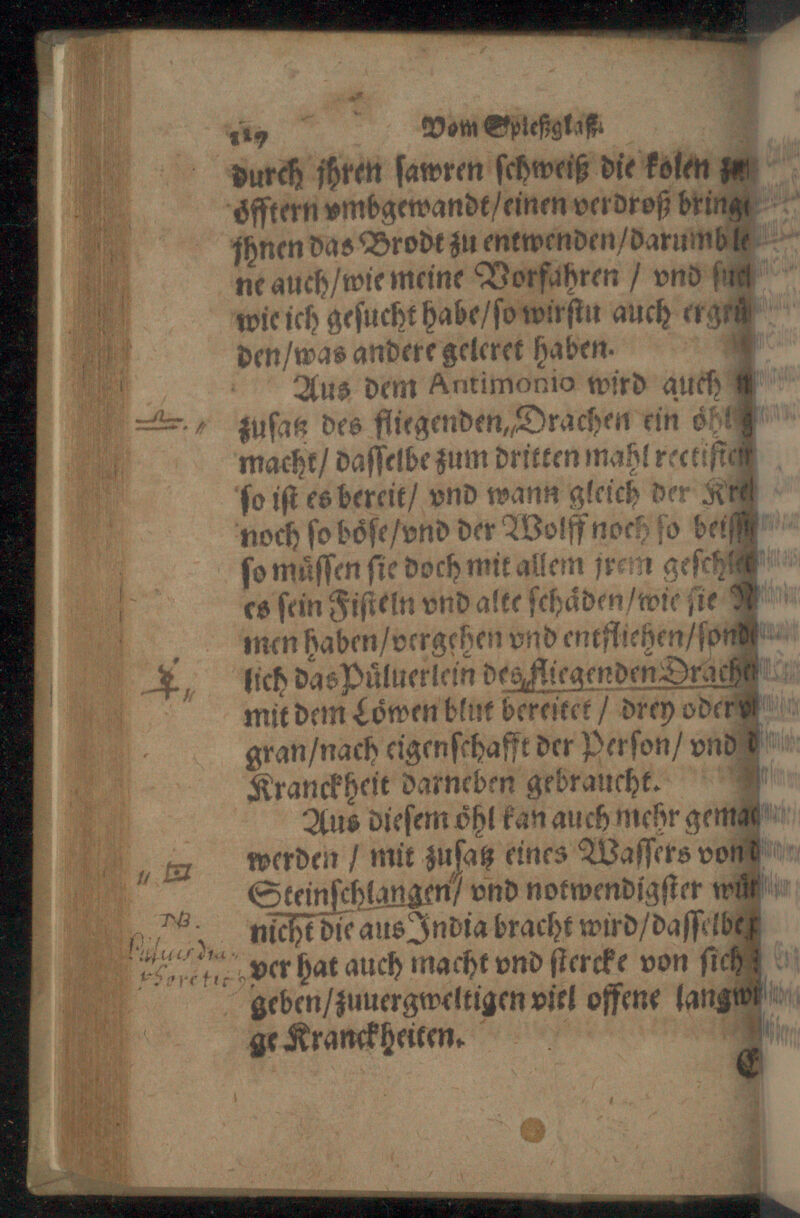 119 Vom Spießglaß.
durch jhren ſawren ſchweiß die kolen
oͤfftern vmbgewandt/einen verdroß bring
jhnen das Brodt zu entwenden/darumb le
ne auch/wie meine Vorfahren / vnd ſu
wie ich geſucht habe/ſo wirſtu auch ergruͤ
den/was andere geleret haben.
Aus dem Antimonio wird auch
zuſatz des fliegenden Drachen ein oͤhl
macht/ daſſelbe zum dritten mahl rectifi
ſo iſt es bereit/ vnd wann gleich der Kre
noch ſo boͤſe/vnd der Wolff noch ſo beiſſ
ſo muͤſſen ſie doch mit allem jrem geſchl
es ſein Fiſteln vnd alte ſchaͤden/wie ſie N
men haben/vergehen vnd entfliehen/ſond
lich das Puͤluerlein des fliegenden Drach
mit dem Loͤwen blut bereitet / drey oder
gran/nach eigenſchafft der Perſon/ vnd
Kranckheit darneben gebraucht.
Aus dieſem oͤhl kan auch mehr gema
werden / mit zuſatz eines Waſſers von
Steinſchlangen/ vnd notwendigſter wuͤ
NB. nicht die aus India bracht wird/daſſelbe
ver hat auch macht vnd ſtercke von ſich
geben/zuuergweltigen vitl offene langw
ge Kranckheiten.
E